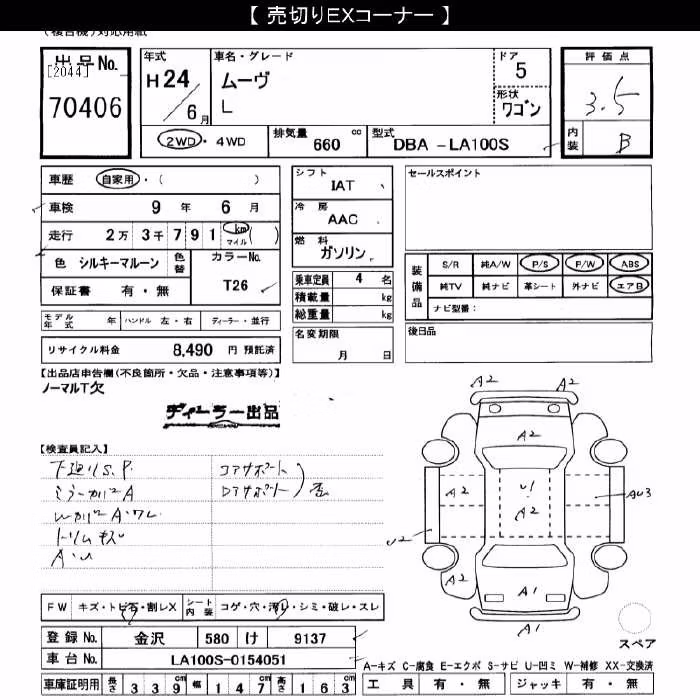 【 売切りEXコーナー 】
(複合機)対応用紙
出品No.
[2044]
70406
年式
H24
6月
車名・グレード
ムーヴ
L
ドア
5
形状
ワゴン
2WD・4WD
排気量 660 cc
型式 DBA -LA100S
評価点
3.5
内装 B
車歴 自家用・( )
車検 9 年 6 月
走行 2万 3千 7 9 1 km マイル ( )
色 シルキーマルーン 色替
カラーNo.
T26
保証書 有・無
シフト
IAT
冷房
AAC
燃料
ガソリン
乗車定員 4 名
積載量 kg
総重量 kg
セールスポイント
装備品
S/R 純A/W P/S P/W ABS
純TV 純ナビ 革シート 外ナビ エアB
ナビ型番:
モデル年式 年 ハンドル 左・右 ディーラー・並行
リサイクル料金 8,490 円 預託済
名変期限
月 日
後日品
【出品店申告欄(不良箇所・欠品・注意事項等)】
ノーマルT欠
ディーラー出品
【検査員記入】
下廻りS.P.
ミラーカバーA
トリムキズ
A・U
コアサポート
ロアサポート
A2 A2
A2
A2 U1 AU3
A2
U2
A2 A1
A1
スペア
FW キズ・トビ石・割レX
シート内装 コゲ・穴・汚レ・シミ・破レ・スレ
登録No. 金沢 580 け 9137
車台No. LA100S-0154051
車庫証明用 長さ 3 3 9 cm 幅 1 4 7 cm 高さ 1 6 3 cm
A-キズ C-腐食 E-エクボ S-サビ U-凹ミ W-補修 XX-交換済
工具 有・無 ジャッキ 有・無